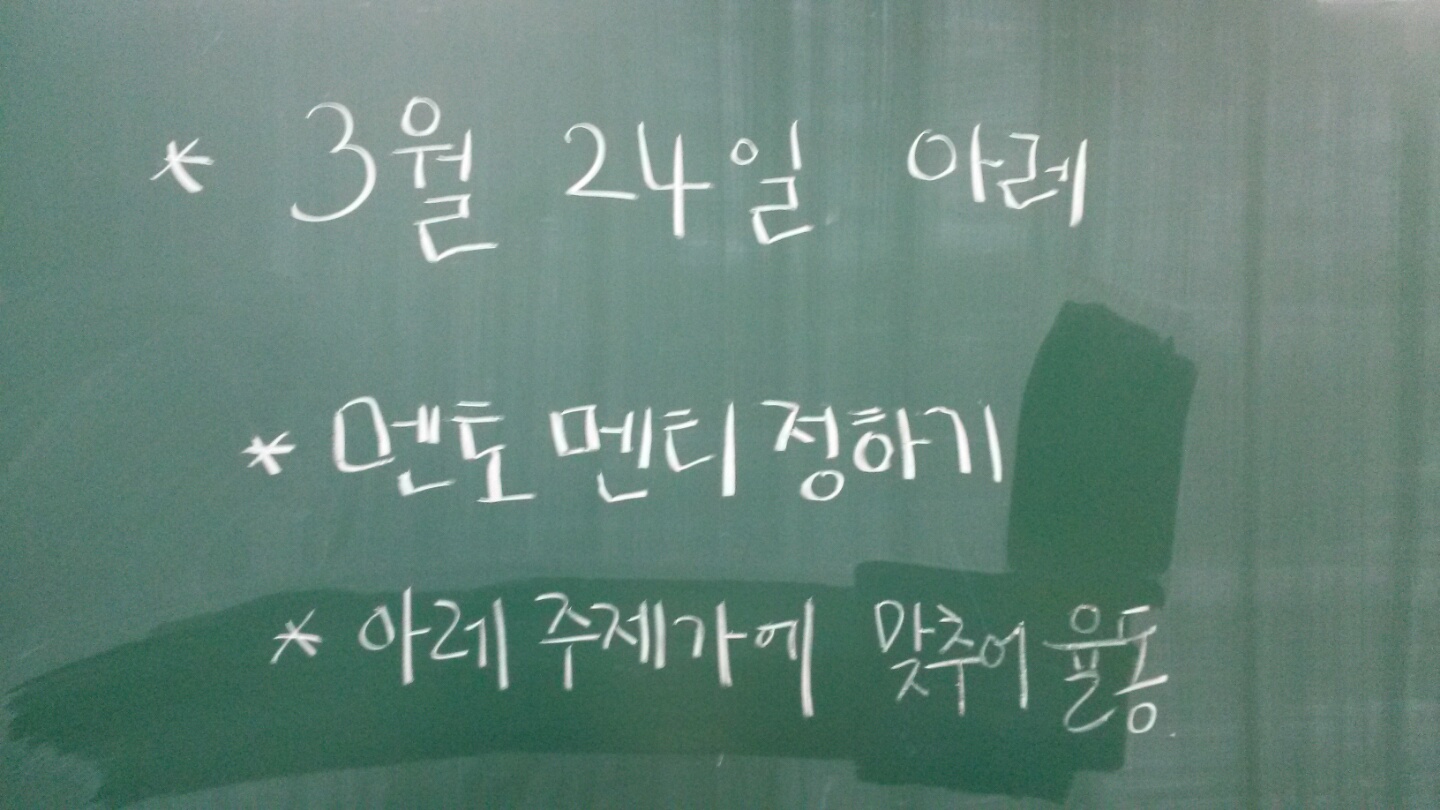 * 3월 24일 아레
* 멘토 멘티 정하기
* 아레 주제가에 맞추어 율동.